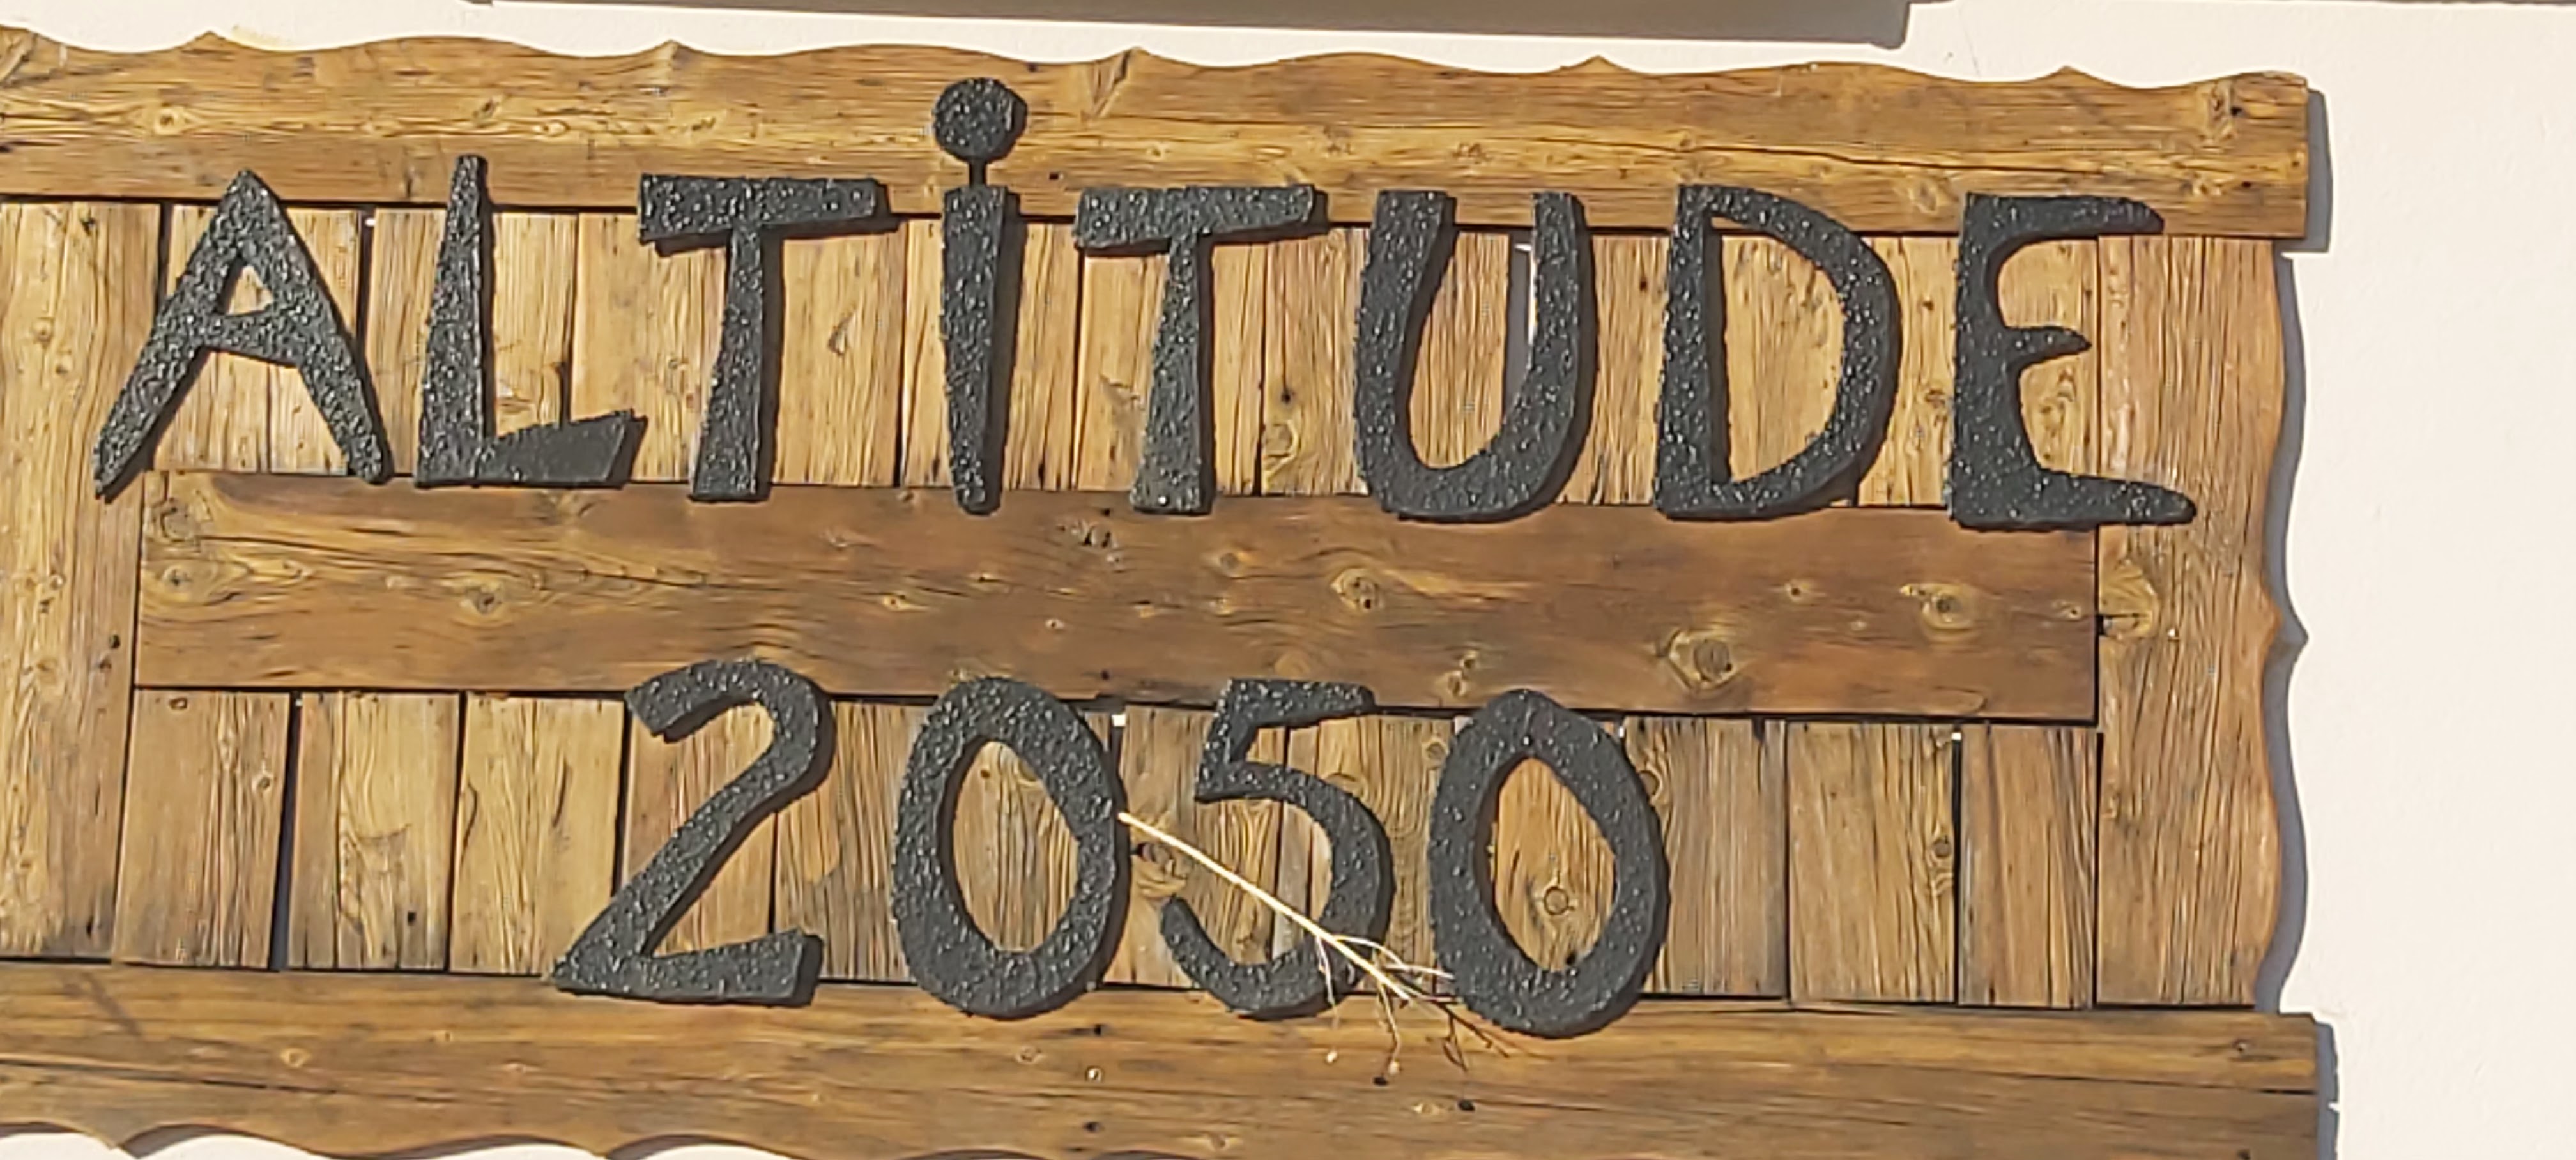 ALTİTUDE
2050